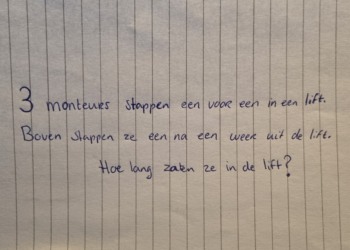 3 monteurs stappen een voor een in een lift.
Boven stappen ze een na een week uit de lift.
Hoe lang zaten ze in de lift?